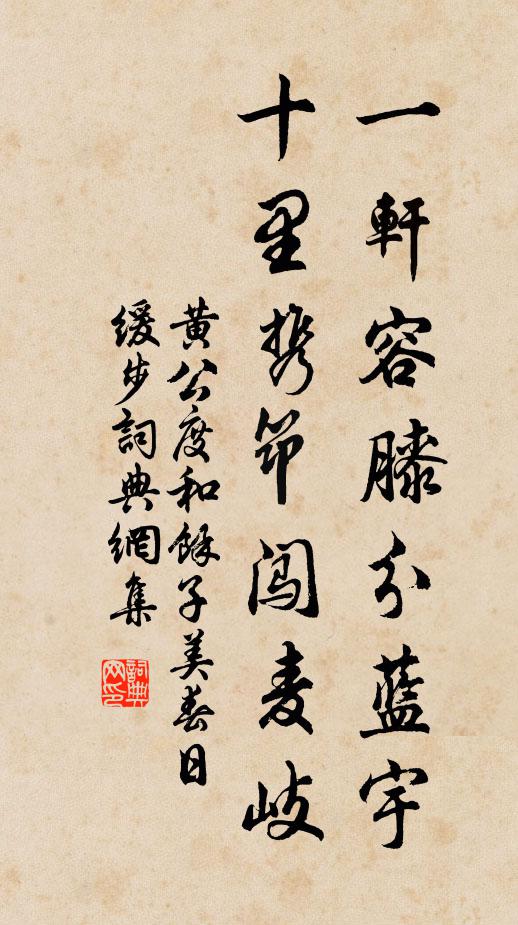 一軒容膝分藍宇
十里携筇闖麦岐
黄公度和餘子美春日
緩步詞典網集
詞典网印